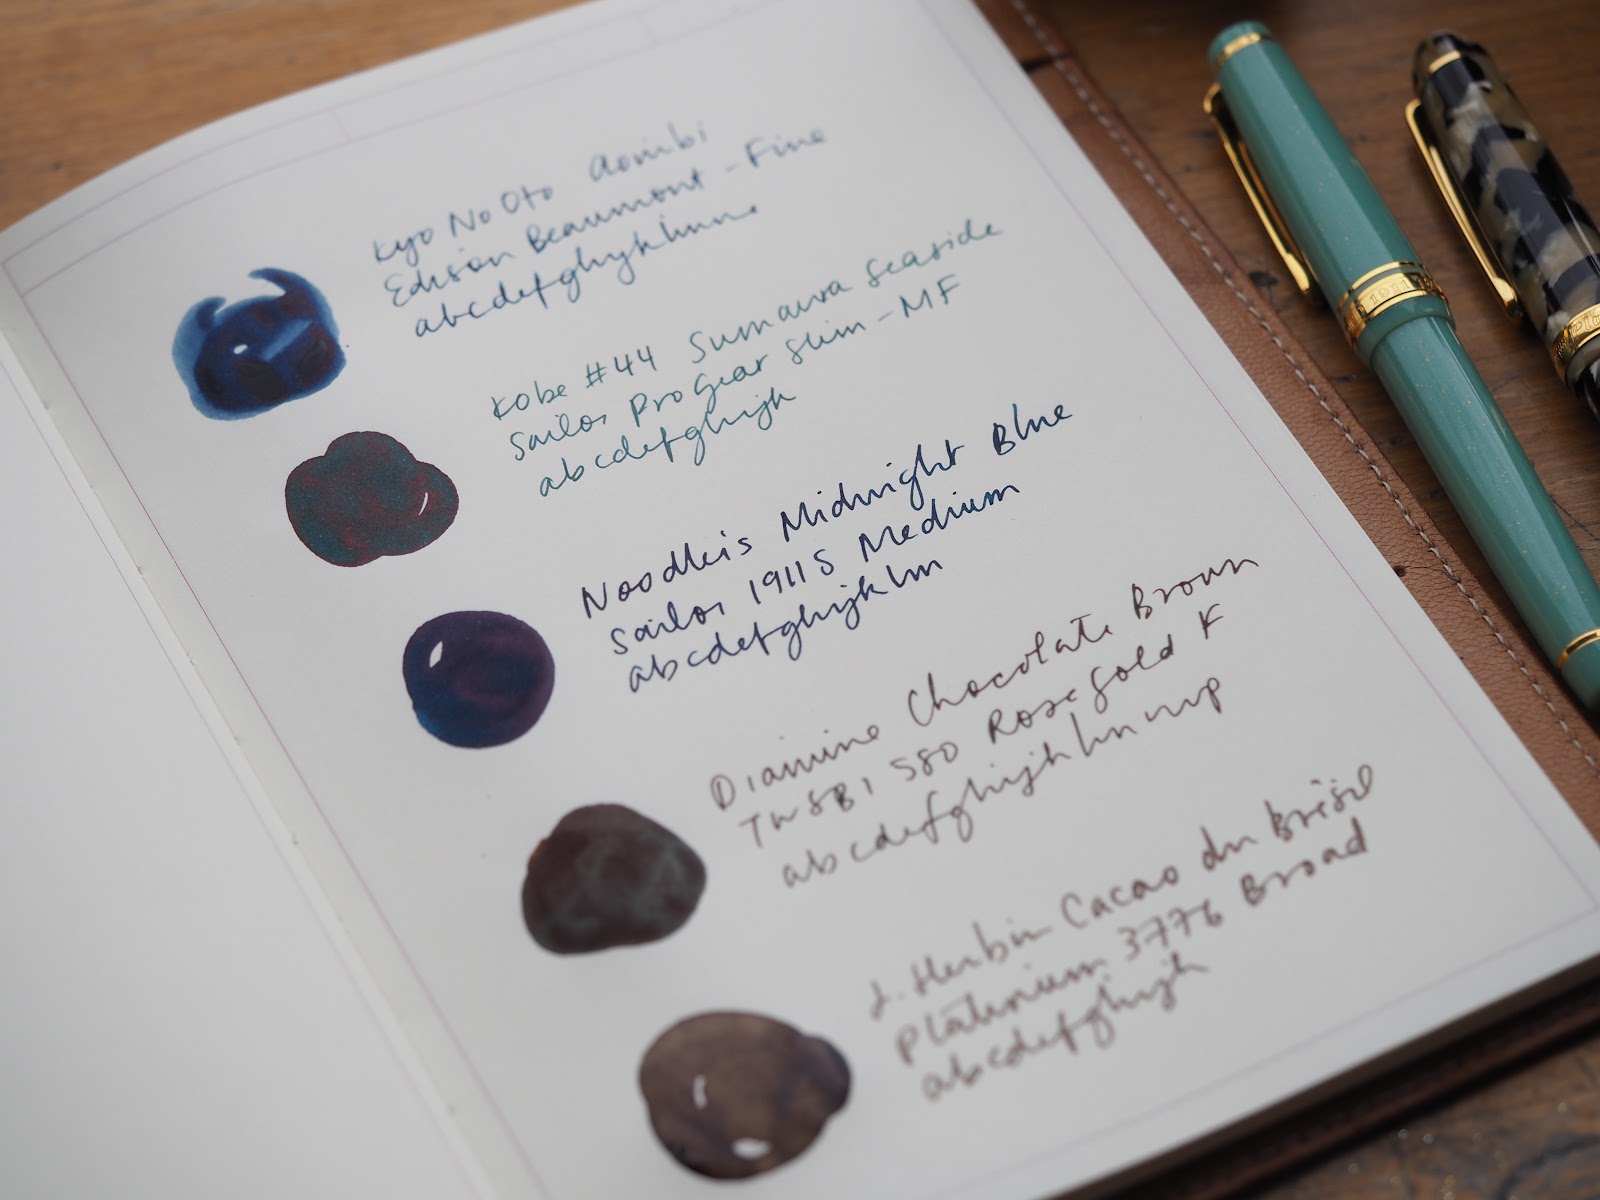 Kyo No Oto Aonibi
Edison Beaumont - Fine
abcdefghijklmno
Kobe #44 Sumaura Seaside
Sailor Pro Gear Slim - MF
abcdefghijk
Noodler's Midnight Blue
Sailor 1911S Medium
abcdefghijklm
Diamine Chocolate Brown
TWSBI 580 Rose Gold F
abcdefghijklmnop
J. Herbin Cacao du Brésil
Platinum 3776 Broad
abcdefghijk
1911